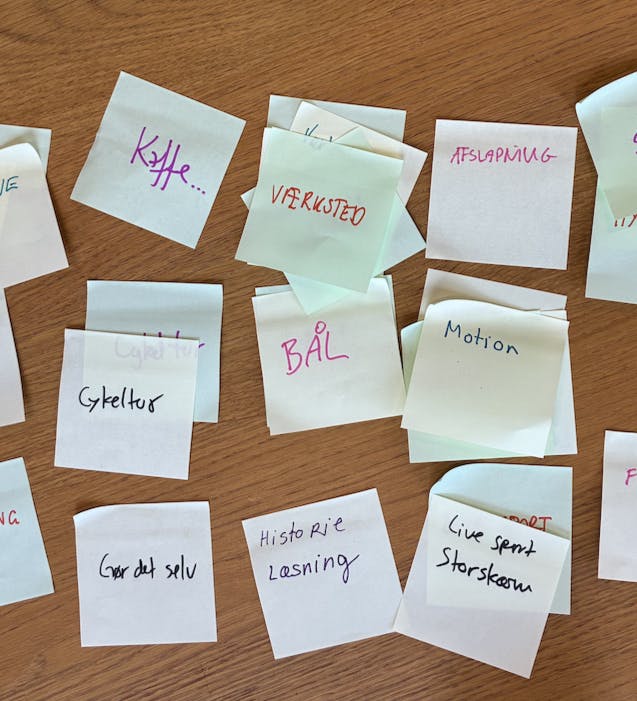 Kaffe...
VÆRKSTED
AFSLAPNING
Cykeltur
Cykeltur
BÅL
Motion
Gør det selv
Historie
Læsning
Live sport
Storskærm